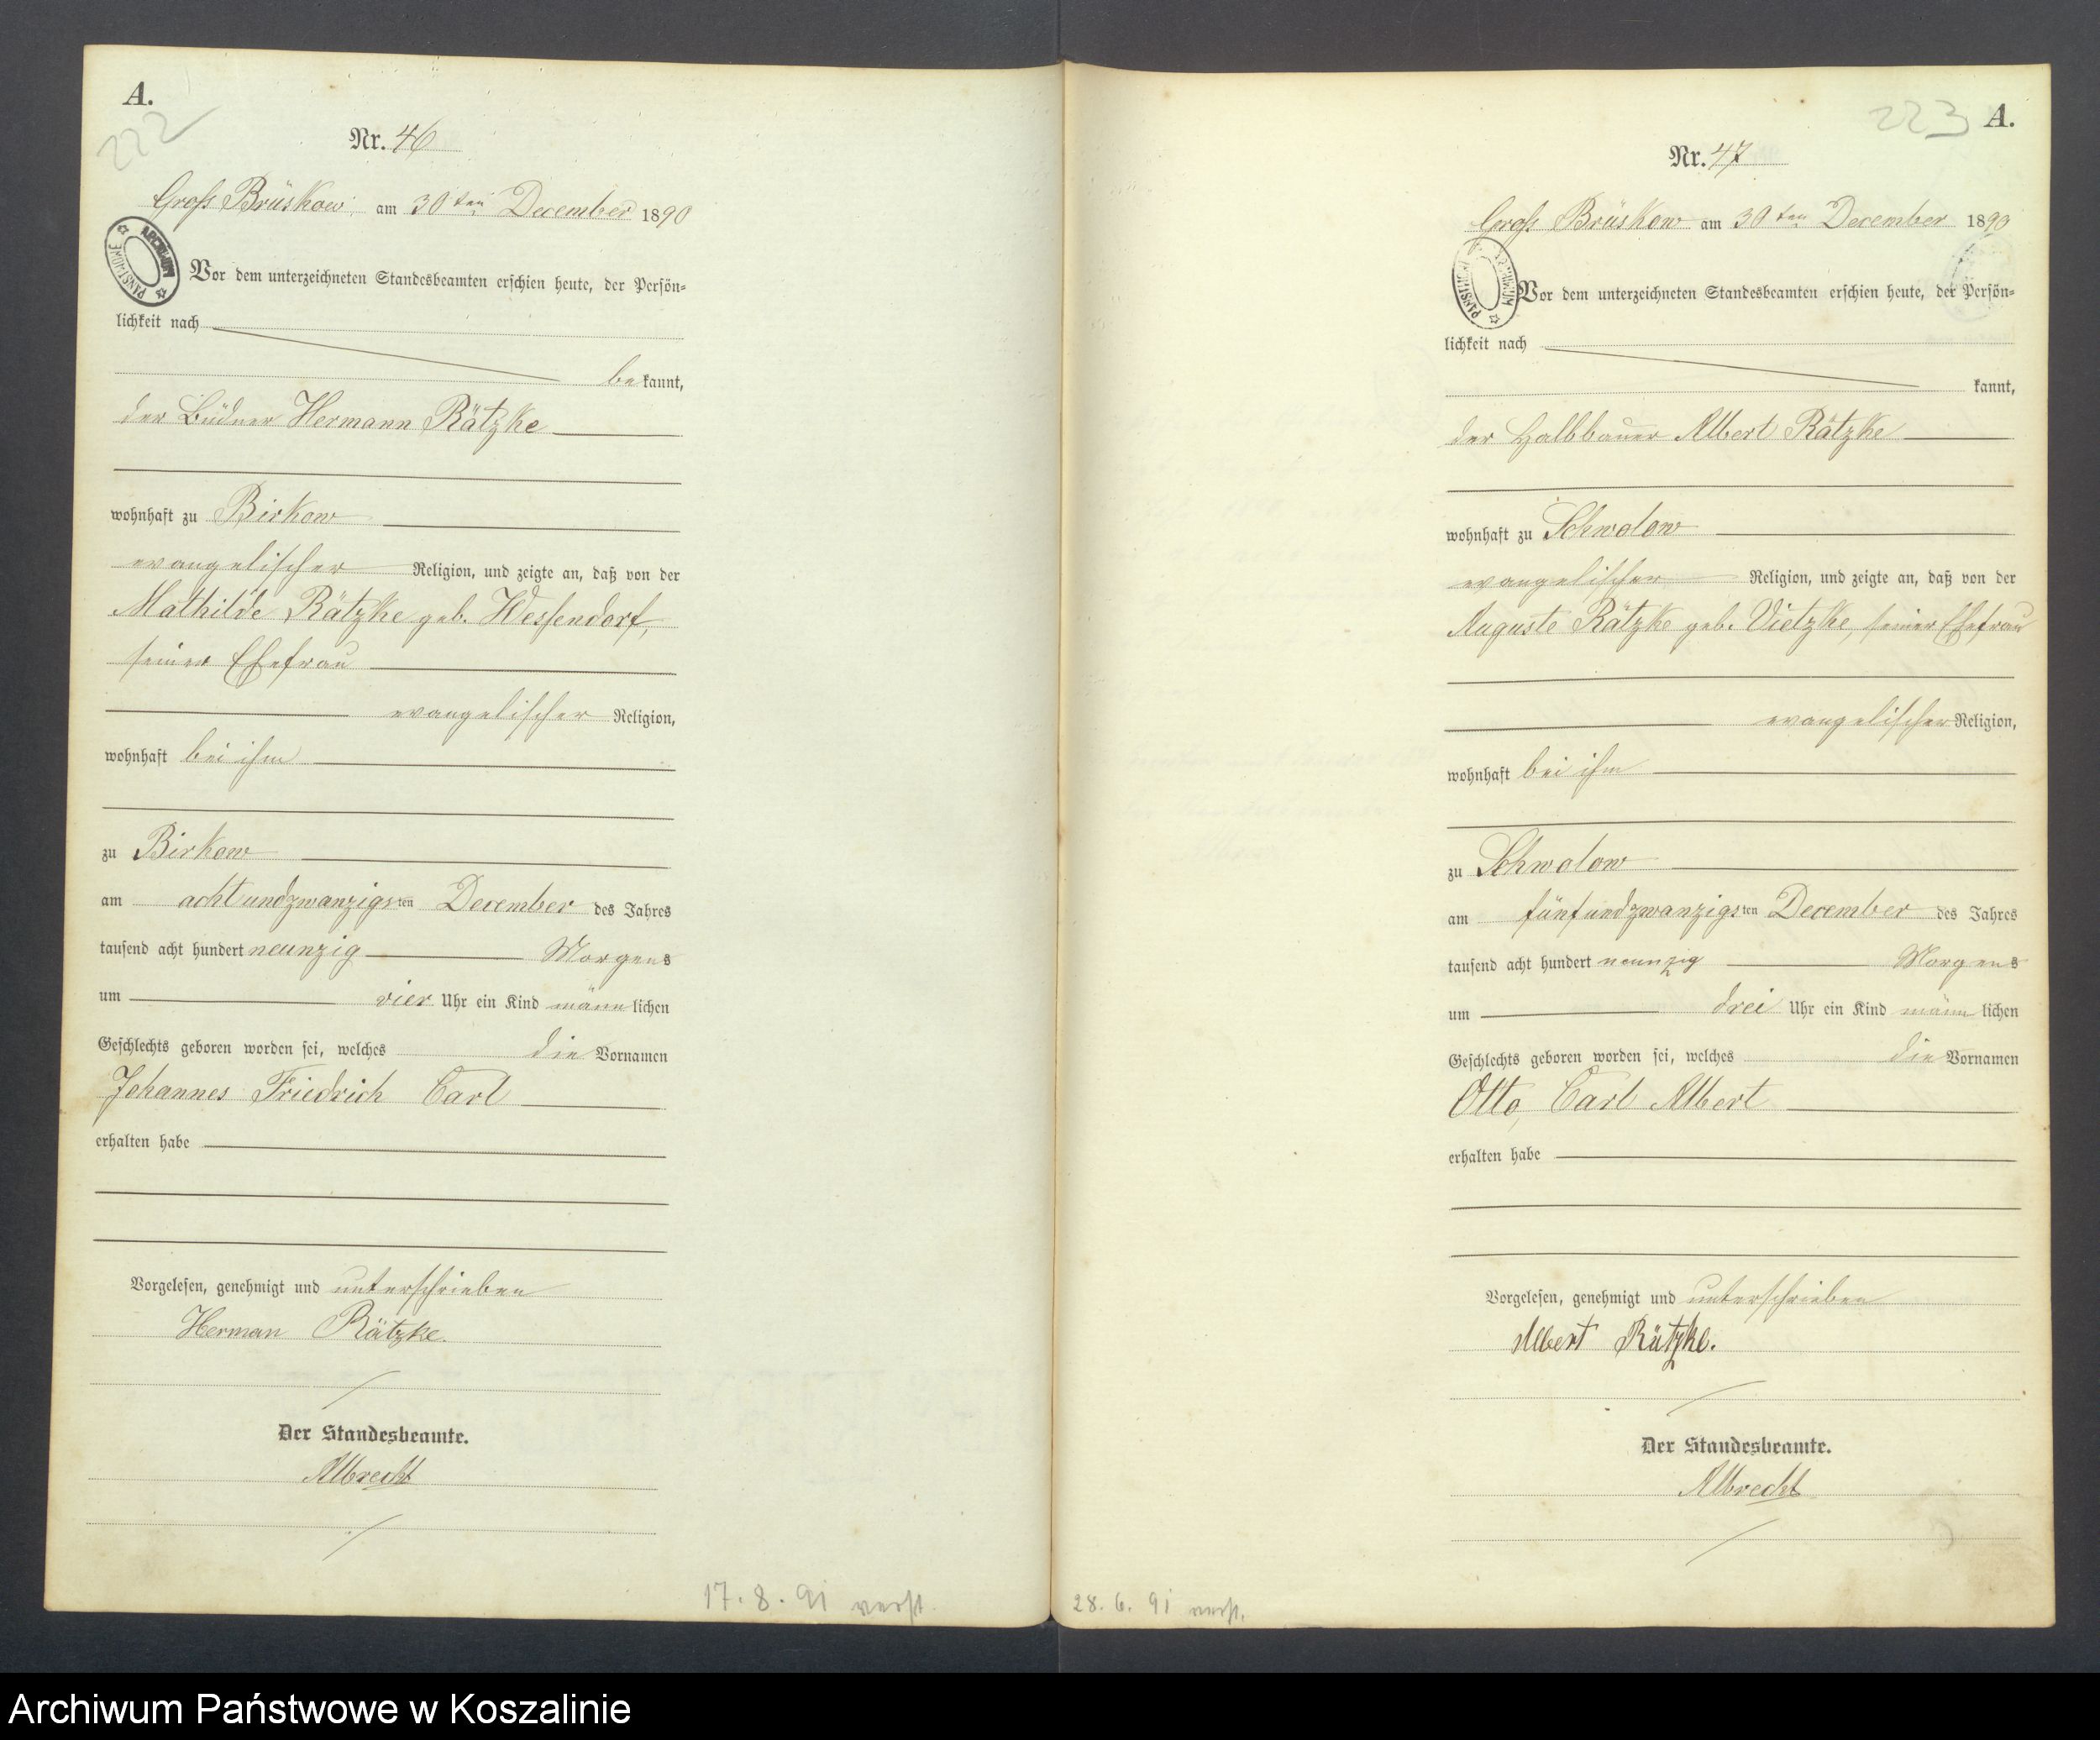 A.
222
Nr. 46
Groß Brüskow am 30ten December 1890
ARCHIWUM PAŃSTWOWE
Vor dem unterzeichneten Standesbeamten erschien heute, der Persön-
lichkeit nach
bekannt,
der Büdner Hermann Rätzke
wohnhaft zu Birkow
evangelischer Religion, und zeigte an, daß von der
Mathilde Rätzke geb. Wessendorf,
seiner Ehefrau
evangelischer Religion,
wohnhaft bei ihm
zu Birkow
am achtundzwanzigsten December des Jahres
tausend acht hundert neunzig Morgens
um vier Uhr ein Kind männlichen
Geschlechts geboren worden sei, welches die Vornamen
Johannes Friedrich Carl
erhalten habe
Vorgelesen, genehmigt und unterschrieben
Herman Rätzke.
Der Standesbeamte.
Albrecht
17. 8. 91 verst.
223 A.
Nr. 47
Groß Brüskow am 30ten December 1890
ARCHIWUM PAŃSTWOWE
Vor dem unterzeichneten Standesbeamten erschien heute, der Persön-
lichkeit nach
kannt,
der Halbbauer Albert Rätzke
wohnhaft zu Schwolow
evangelischer Religion, und zeigte an, daß von der
Auguste Rätzke geb. Vietzke, seiner Ehefrau
evangelischer Religion,
wohnhaft bei ihm
zu Schwolow
am fünfundzwanzigsten December des Jahres
tausend acht hundert neunzig Morgens
um drei Uhr ein Kind männlichen
Geschlechts geboren worden sei, welches die Vornamen
Otto, Carl Albert
erhalten habe
Vorgelesen, genehmigt und unterschrieben
Albert Rätzke.
Der Standesbeamte.
Albrecht
28. 6. 91 verst.
Archiwum Państwowe w Koszalinie